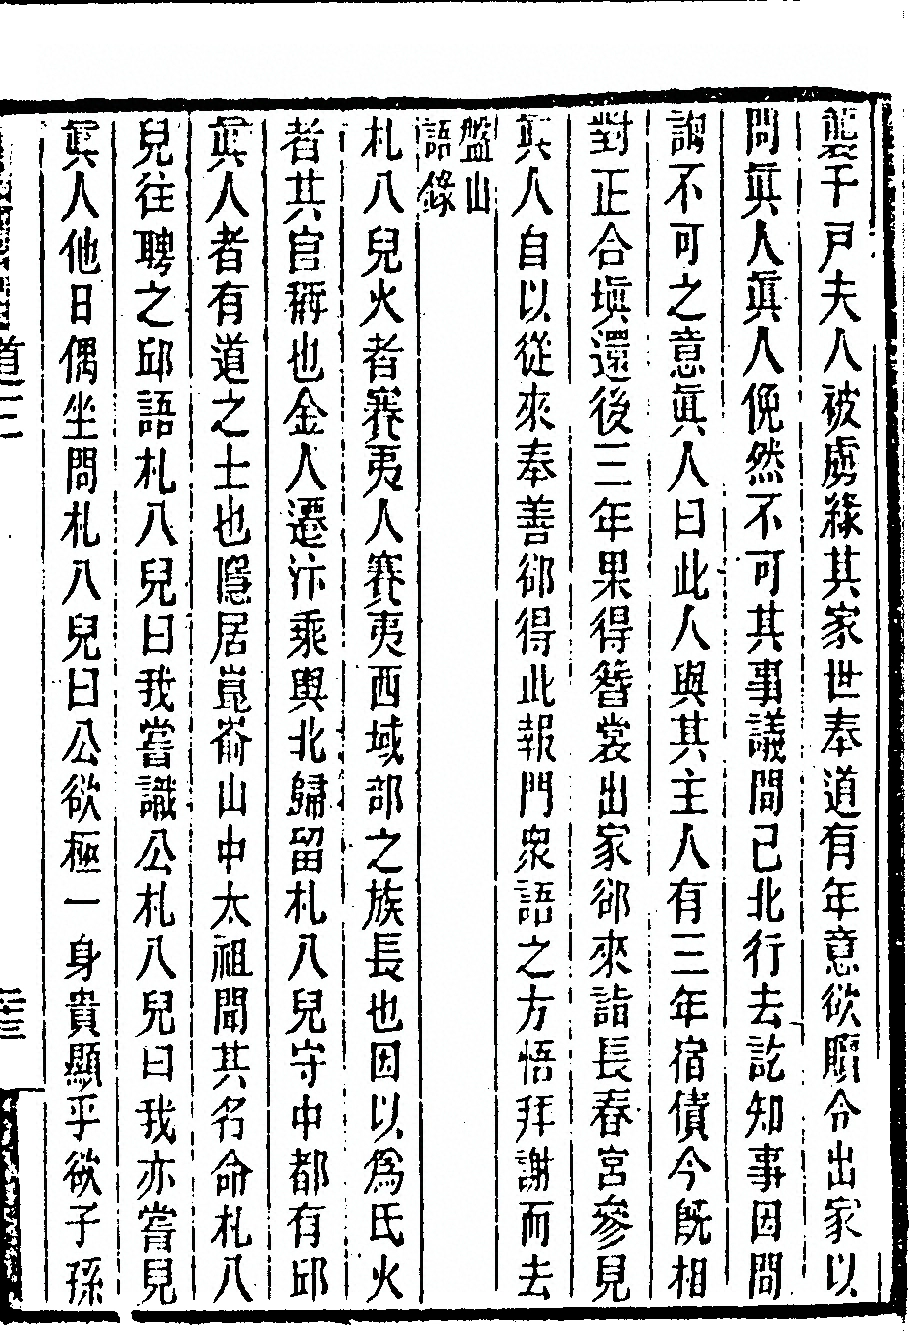 襲千戸夫人被虜緣其家世奉道有年意欲贖令出家以
問眞人眞人俛然不可其事議間已北行去訖知事因問
謂不可之意眞人曰此人與其主人有三年宿債今旣相
對正合塡還後三年果得簪裳出家郤來詣長春宮參見
眞人自以從來奉善郤得此報門衆語之方悟拜謝而去
盤山
語錄
札八兒火者賽夷人賽夷西域部之族長也因以爲氏火
者其官稱也金人遷汴乘輿北歸留札八兒守中都有邱
眞人者有道之士也隱居崑崙山中太祖聞其名命札八
兒往聘之邱語札八兒曰我嘗識公札八兒曰我亦嘗見
眞人他日偶坐問札八兒曰公欲極一身貴顯乎欲子孫
道二
三